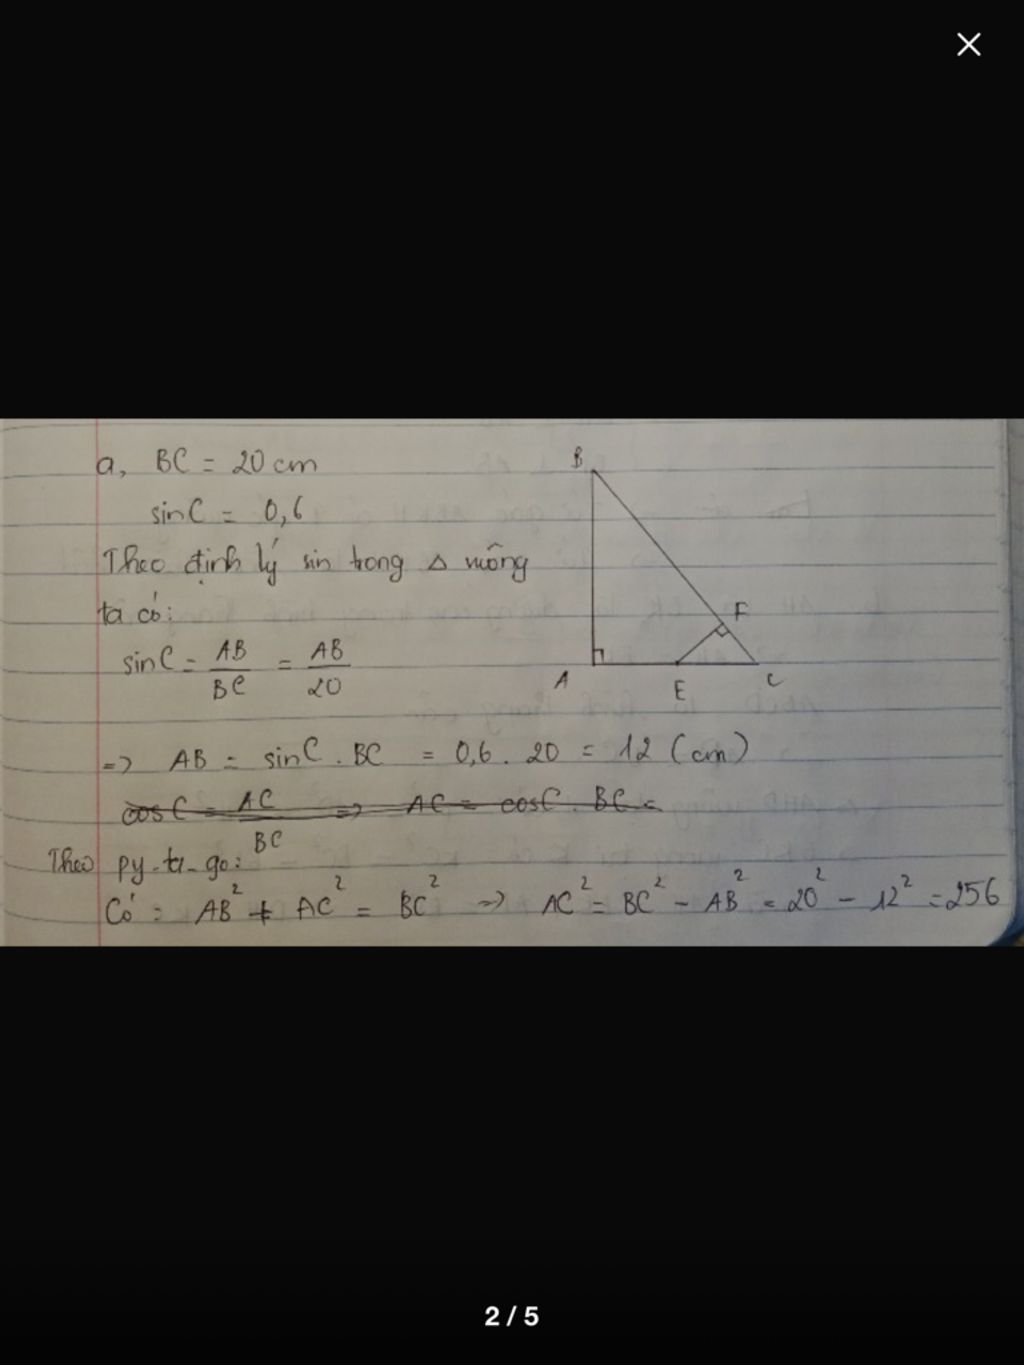 a, BC = 20 cm
sin C = 0,6
Theo định lý sin trong Δ muông
ta có:
sin C = AB/BC = AB/20
=> AB = sin C . BC = 0,6 . 20 = 12 (cm)
cos C = AC/BC => AC = cos C . BC =
Theo py-ta-go:
Có: AB² + AC² = BC² => AC² = BC² - AB² = 20² - 12² = 256
B
F
A
E
C
2 / 5